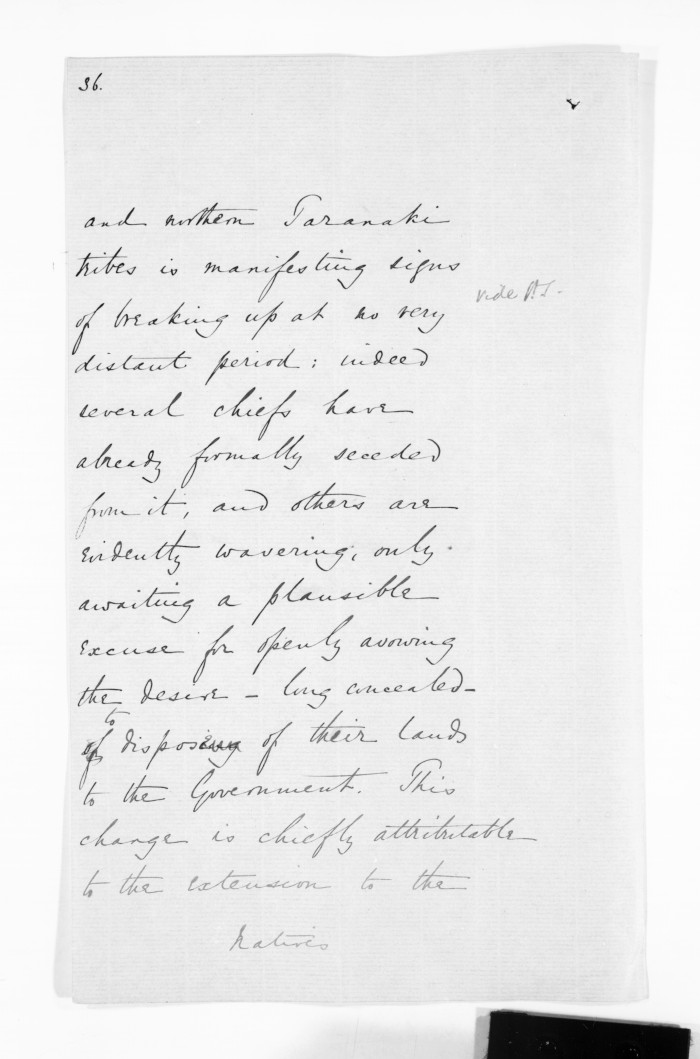 36.
and northern Taranaki
tribes is manifesting signs
vide P.S.
of breaking up at no very
distant period: indeed
several chiefs have
already formally seceded
from it, and others are
evidently wavering, only
awaiting a plausible
excuse for openly avowing
the desire - long concealed -
to
of disposing of their lands
to the Government. This
change is chiefly attributable
to the extension to the
Natives